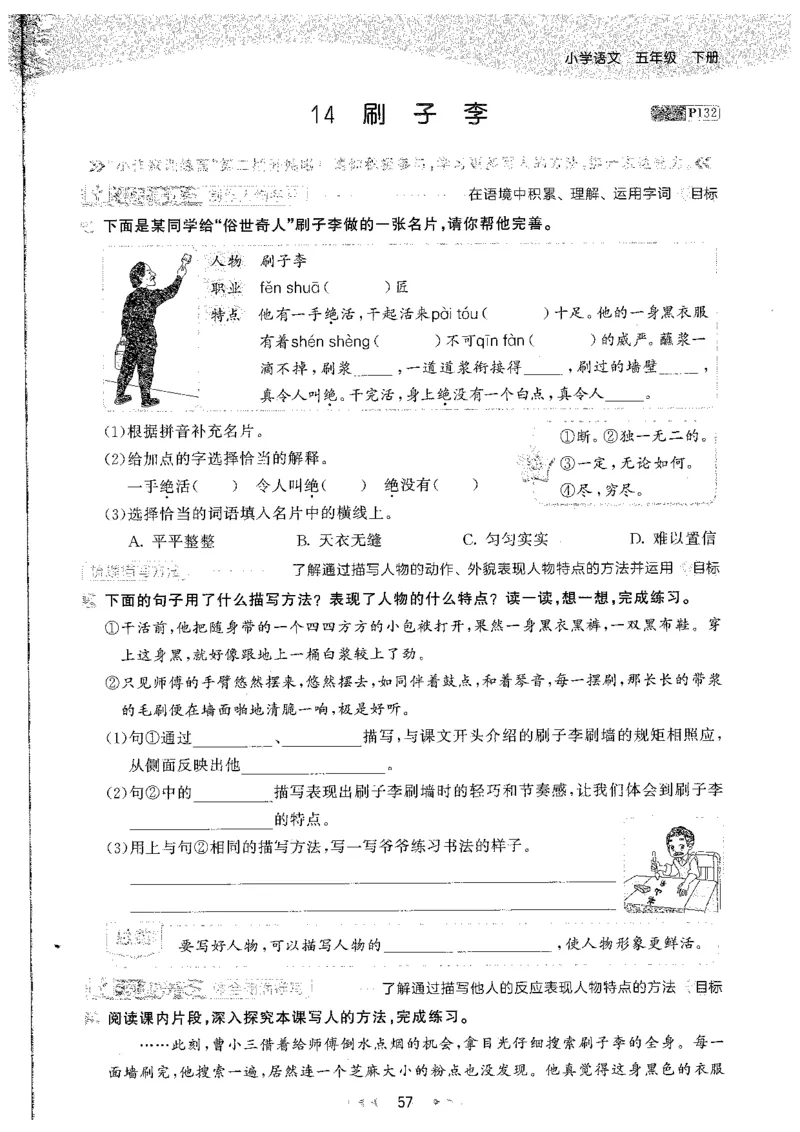 小学语文 五年级 下册
14 刷 子 李
P132
在语境中积累、理解、运用字词 目标
下面是某同学给“俗世奇人”刷子李做的一张名片,请你帮他完善。
人物 刷子李
职业 fěn shuā( )匠
特点 他有一手绝活,干起活来pài tóu( )十足。他的一身黑衣服
有着shén shèng( )不可qīn fàn( )的威严。蘸浆一
滴不掉,刷浆_____,一道道浆衔接得_____,刷过的墙壁_____,
真令人叫绝。干完活,身上绝没有一个白点,真令人_____。
(1)根据拼音补充名片。
(2)给加点的字选择恰当的解释。
一手绝活( ) 令人叫绝( ) 绝没有( )
①断。②独一无二的。
③一定,无论如何。
④尽,穷尽。
(3)选择恰当的词语填入名片中的横线上。
A. 平平整整 B. 天衣无缝 C. 匀匀实实 D. 难以置信
了解通过描写人物的动作、外貌表现人物特点的方法并运用 目标
下面的句子用了什么描写方法？表现了人物的什么特点？读一读,想一想,完成练习。
①干活前,他把随身带的一个四四方方的小包袱打开,果然一身黑衣黑裤,一双黑布鞋。穿
上这身黑,就好像跟地上一桶白浆较上了劲。
②只见师傅的手臂悠然摆来,悠然摆去,如同伴着鼓点,和着琴音,每一摆刷,那长长的带浆
的毛刷便在墙面啪地清脆一响,极是好听。
(1)句①通过________、________描写,与课文开头介绍的刷子李刷墙的规矩相照应,
从侧面反映出他______________。
(2)句②中的________描写表现出刷子李刷墙时的轻巧和节奏感,让我们体会到刷子李
______________的特点。
(3)用上与句②相同的描写方法,写一写爷爷练习书法的样子。
要写好人物,可以描写人物的________________,使人物形象更鲜活。
了解通过描写他人的反应表现人物特点的方法 目标
阅读课内片段,深入探究本课写人的方法,完成练习。
……此刻,曹小三借着给师傅倒水点烟的机会,拿目光仔细搜索刷子李的全身。每一
面墙刷完,他搜索一遍,居然连一个芝麻大小的粉点也没发现。他真觉得这身黑色的衣服
57